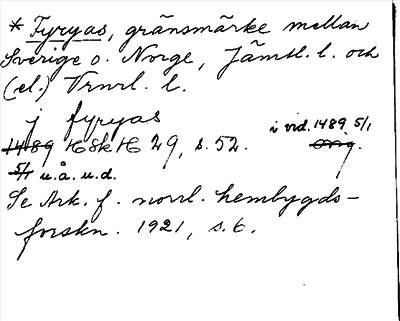 * Fyryas, gränsmärke mellan
Sverige o. Norge, Jämtl. l. och
(el.) Vrmrl. l.
j fyryas
1489 HSH 29, s. 52. i vid. 1489 5/1
5/1 u.å. u.d. orig.
Se Ark. f. norrl. hembygds-
forskn. 1921, s. 6.